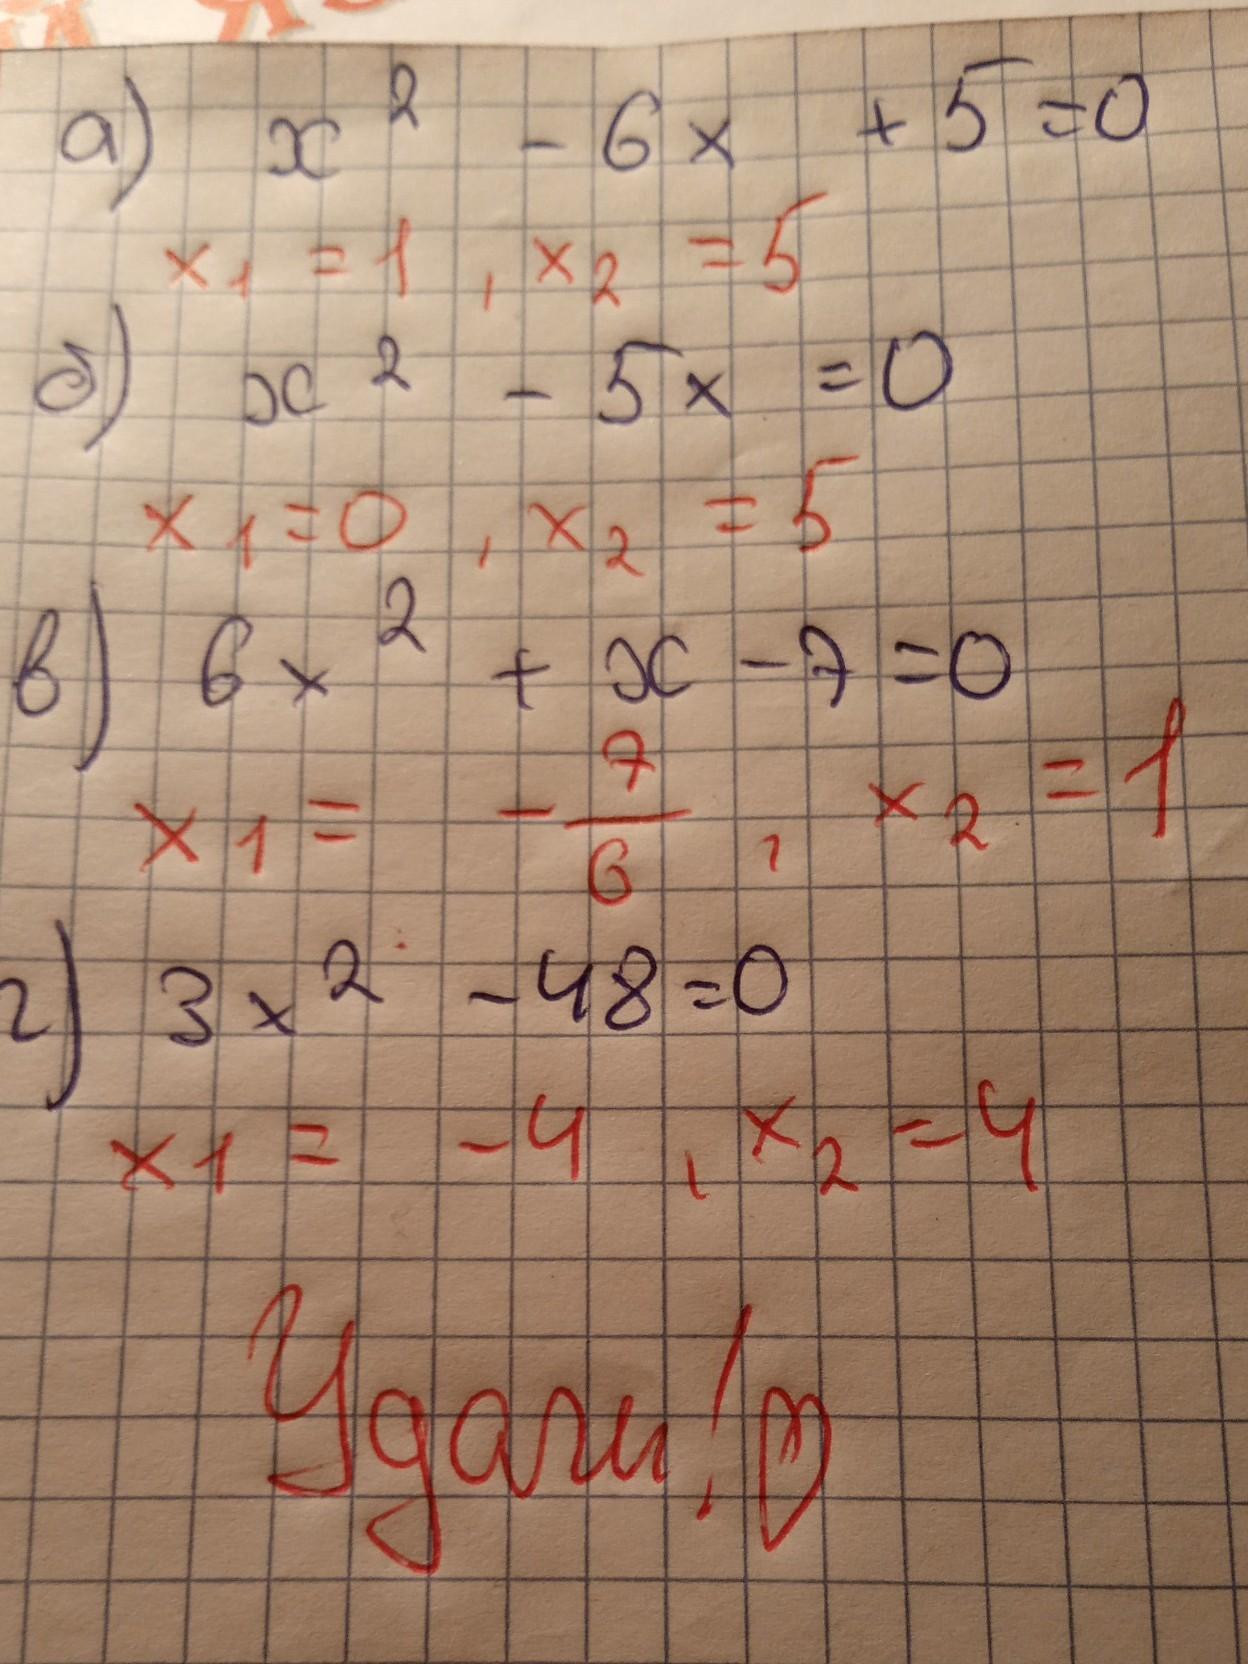 а) x² - 6x + 5 = 0
x₁ = 1, x₂ = 5
б) x² - 5x = 0
x₁ = 0, x₂ = 5
в) 6x² + x - 7 = 0
x₁ = -7/6, x₂ = 1
г) 3x² - 48 = 0
x₁ = -4, x₂ = 4
Удачи!